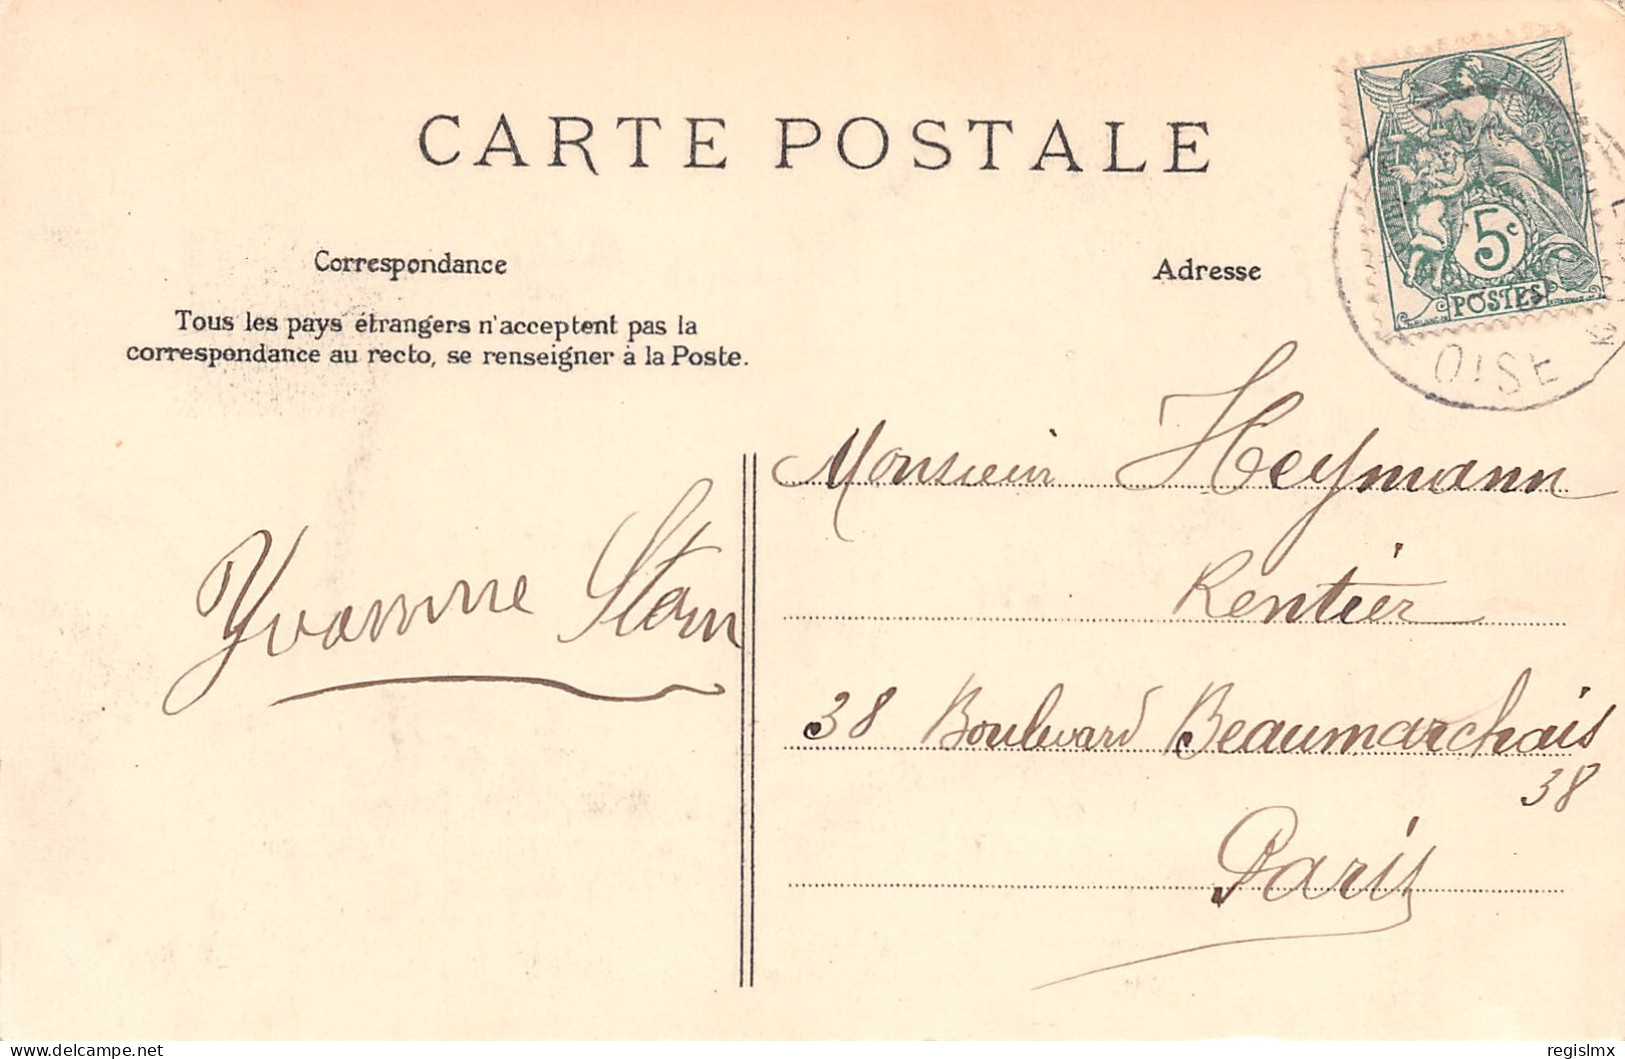 CARTE POSTALE
RÉPUBLIQUE FRANÇAISE
5c
POSTES
OISE
Correspondance
Adresse
Tous les pays étrangers n'acceptent pas la
correspondance au recto, se renseigner à la Poste.
Yvonne Stern
Monsieur Heymann
Rentier
38 Boulevard Beaumarchais
38
Paris
https://www.delcampe.net
regislmx